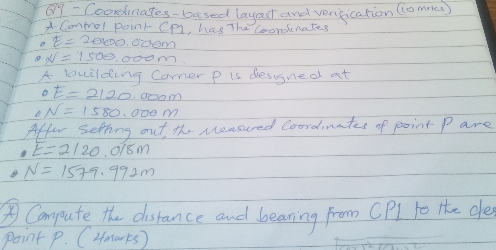 Q9 - Coordinates-based layout and verification (10 mrks)
A Control point CP1, has the coordinates
• E = 2000.000m
• N = 1500.000m.
A building Corner P is designed at
• E = 2120.000m
• N = 1580.000m
After setting out, the measured Coordinates of point P are
• E = 2120.018m
• N = 1579.992m
Compute the distance and bearing from CP1 to the des
point P. (4marks)